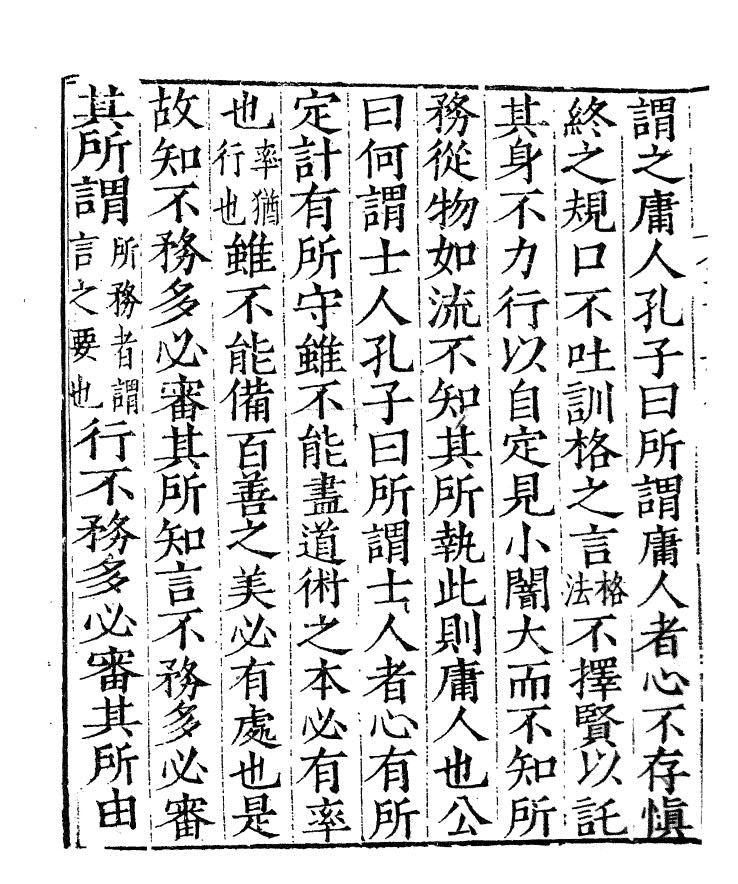 謂之庸人孔子曰所謂庸人者心不存慎
終之規口不吐訓格之言格法不擇賢以託
其身不力行以自定見小闇大而不知所
務從物如流不知其所執此則庸人也公
曰何謂士人孔子曰所謂士人者心有所
定計有所守雖不能盡道術之本必有率
也率猶行也雖不能備百善之美必有處也是
故知不務多必審其所知言不務多必審
其所謂所務者謂言之要也行不務多必審其所由